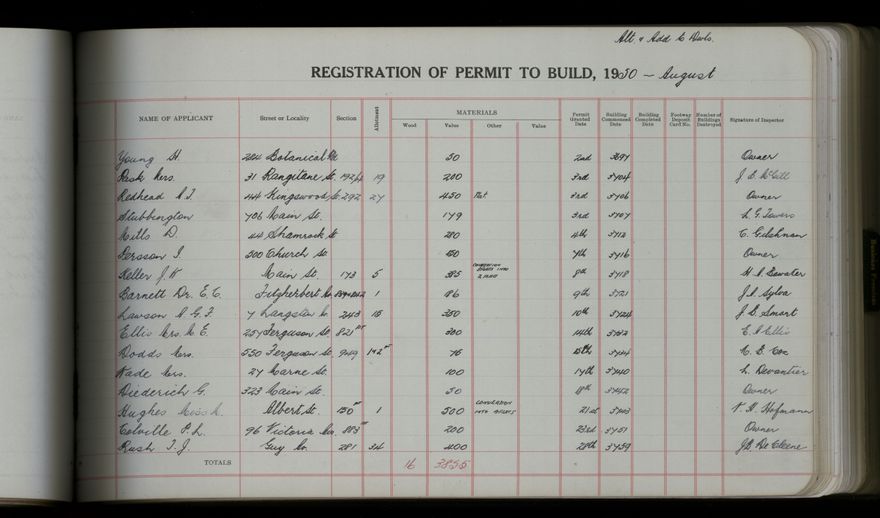 Alt. & Add to Dwls.
REGISTRATION OF PERMIT TO BUILD, 1950 - August
NAME OF APPLICANT Street or Locality Section Allotment MATERIALS Permit Granted Date Building Commenced Date Building Completed Date Footway Deposit Card No. Number of Buildings Destroyed Signature of Inspector
Wood Value Other Value
Young H. 224 Botanical Rd 50 2nd 3697 Owner
Mrs. 31 Rangitane St. 1924 19 200 3rd 5704 J. D. McGill
Redhead 44 Kingswood St. 292 27 450 Flat 3rd 5706 Owner
Stubbington 706 Main St. 179 3rd 5707 L. G. Towers
Mills D. 44 Shamrock St 280 4th 5712 C. Gilchman
Persson I. 500 Church St. 50 7th 5716 Owner
Keller J. W Main St. 173 5 385 Conversion into 2 Flats 8th 5718
Barnett Dr. E. C. Fitzherbert Av. 1 96 9th 5721 J. A. Sylva
Lawson G. F. 7 Langston Av. 2413 15 350 10th 5724 J. D. Smart
Ellis Mrs. C. E. 257 Ferguson St. 821 pt 300 14th 5732 Ellis
Dodds Mrs. 550 Ferguson St. 949 142 pt 75 15th 5734 Cox
Wade Mrs. 27 Carne St. 100 17th 5740 L. Devantier
Diederich G. 323 Main St. 50 18th 5742 Owner
Hughes Miss Albert St. 150 pt 1 500 Conversion into Flats 21st V. H. Hofmann
Colville P. L. 96 Victoria Av. 883 pt 200 23rd 5751 Owner
Rush T. J. Guy Av. 281 34 400 28th 5759 J. B. De Cleene
TOTALS 16 3855